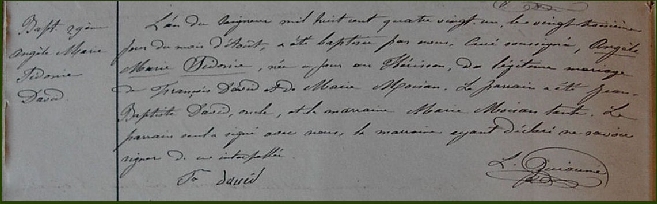 Bapt.
Angèle Marie
Sidonie
David
L'an du Seigneur mil huit cent quatre vingt un, le vingt troisième
jour du mois d'Août, a été baptisée par nous, Curé soussigné, Angèle
Marie Sidonie, née ce jour au Hérisson, du légitime mariage
de François David et de Marie Moisan. Le parrain a été Jean-
Baptiste David, oncle, et la marraine Marie Moisan tante. Le
parrain seul a signé avec nous, la marraine ayant déclaré ne savoir
signer de ce interpellée